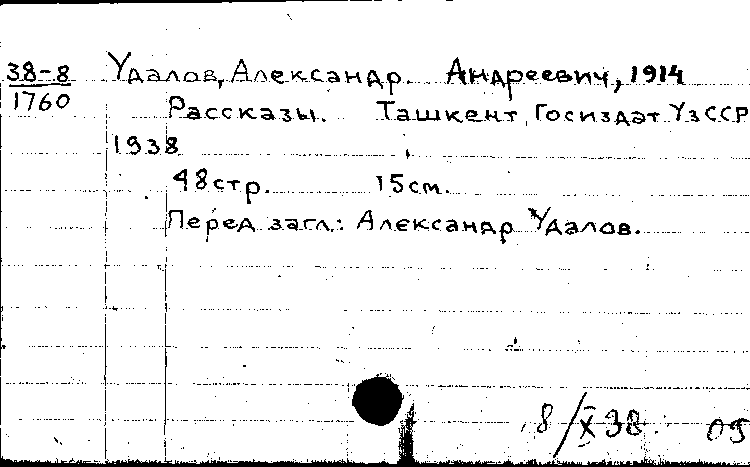 38-8 Удалов, Александр. Андреевич, 1914
1760 Рассказы. Ташкент, Госиздат УзССР
1938
48стр. 15см.
Перед загл.: Александр Удалов.
8/X 38. 09